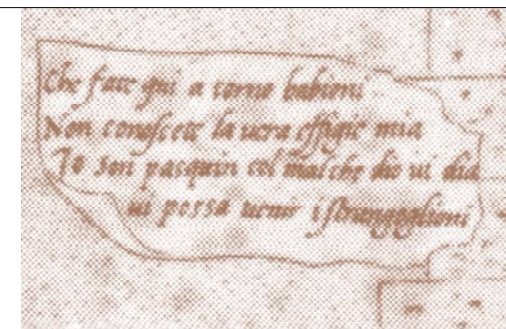 Che fate qui a torno babioni
Non conoscete la uera effigie mia
Io son pasquin col mal che dio ui dia
ui possa uenir i strangoglioni